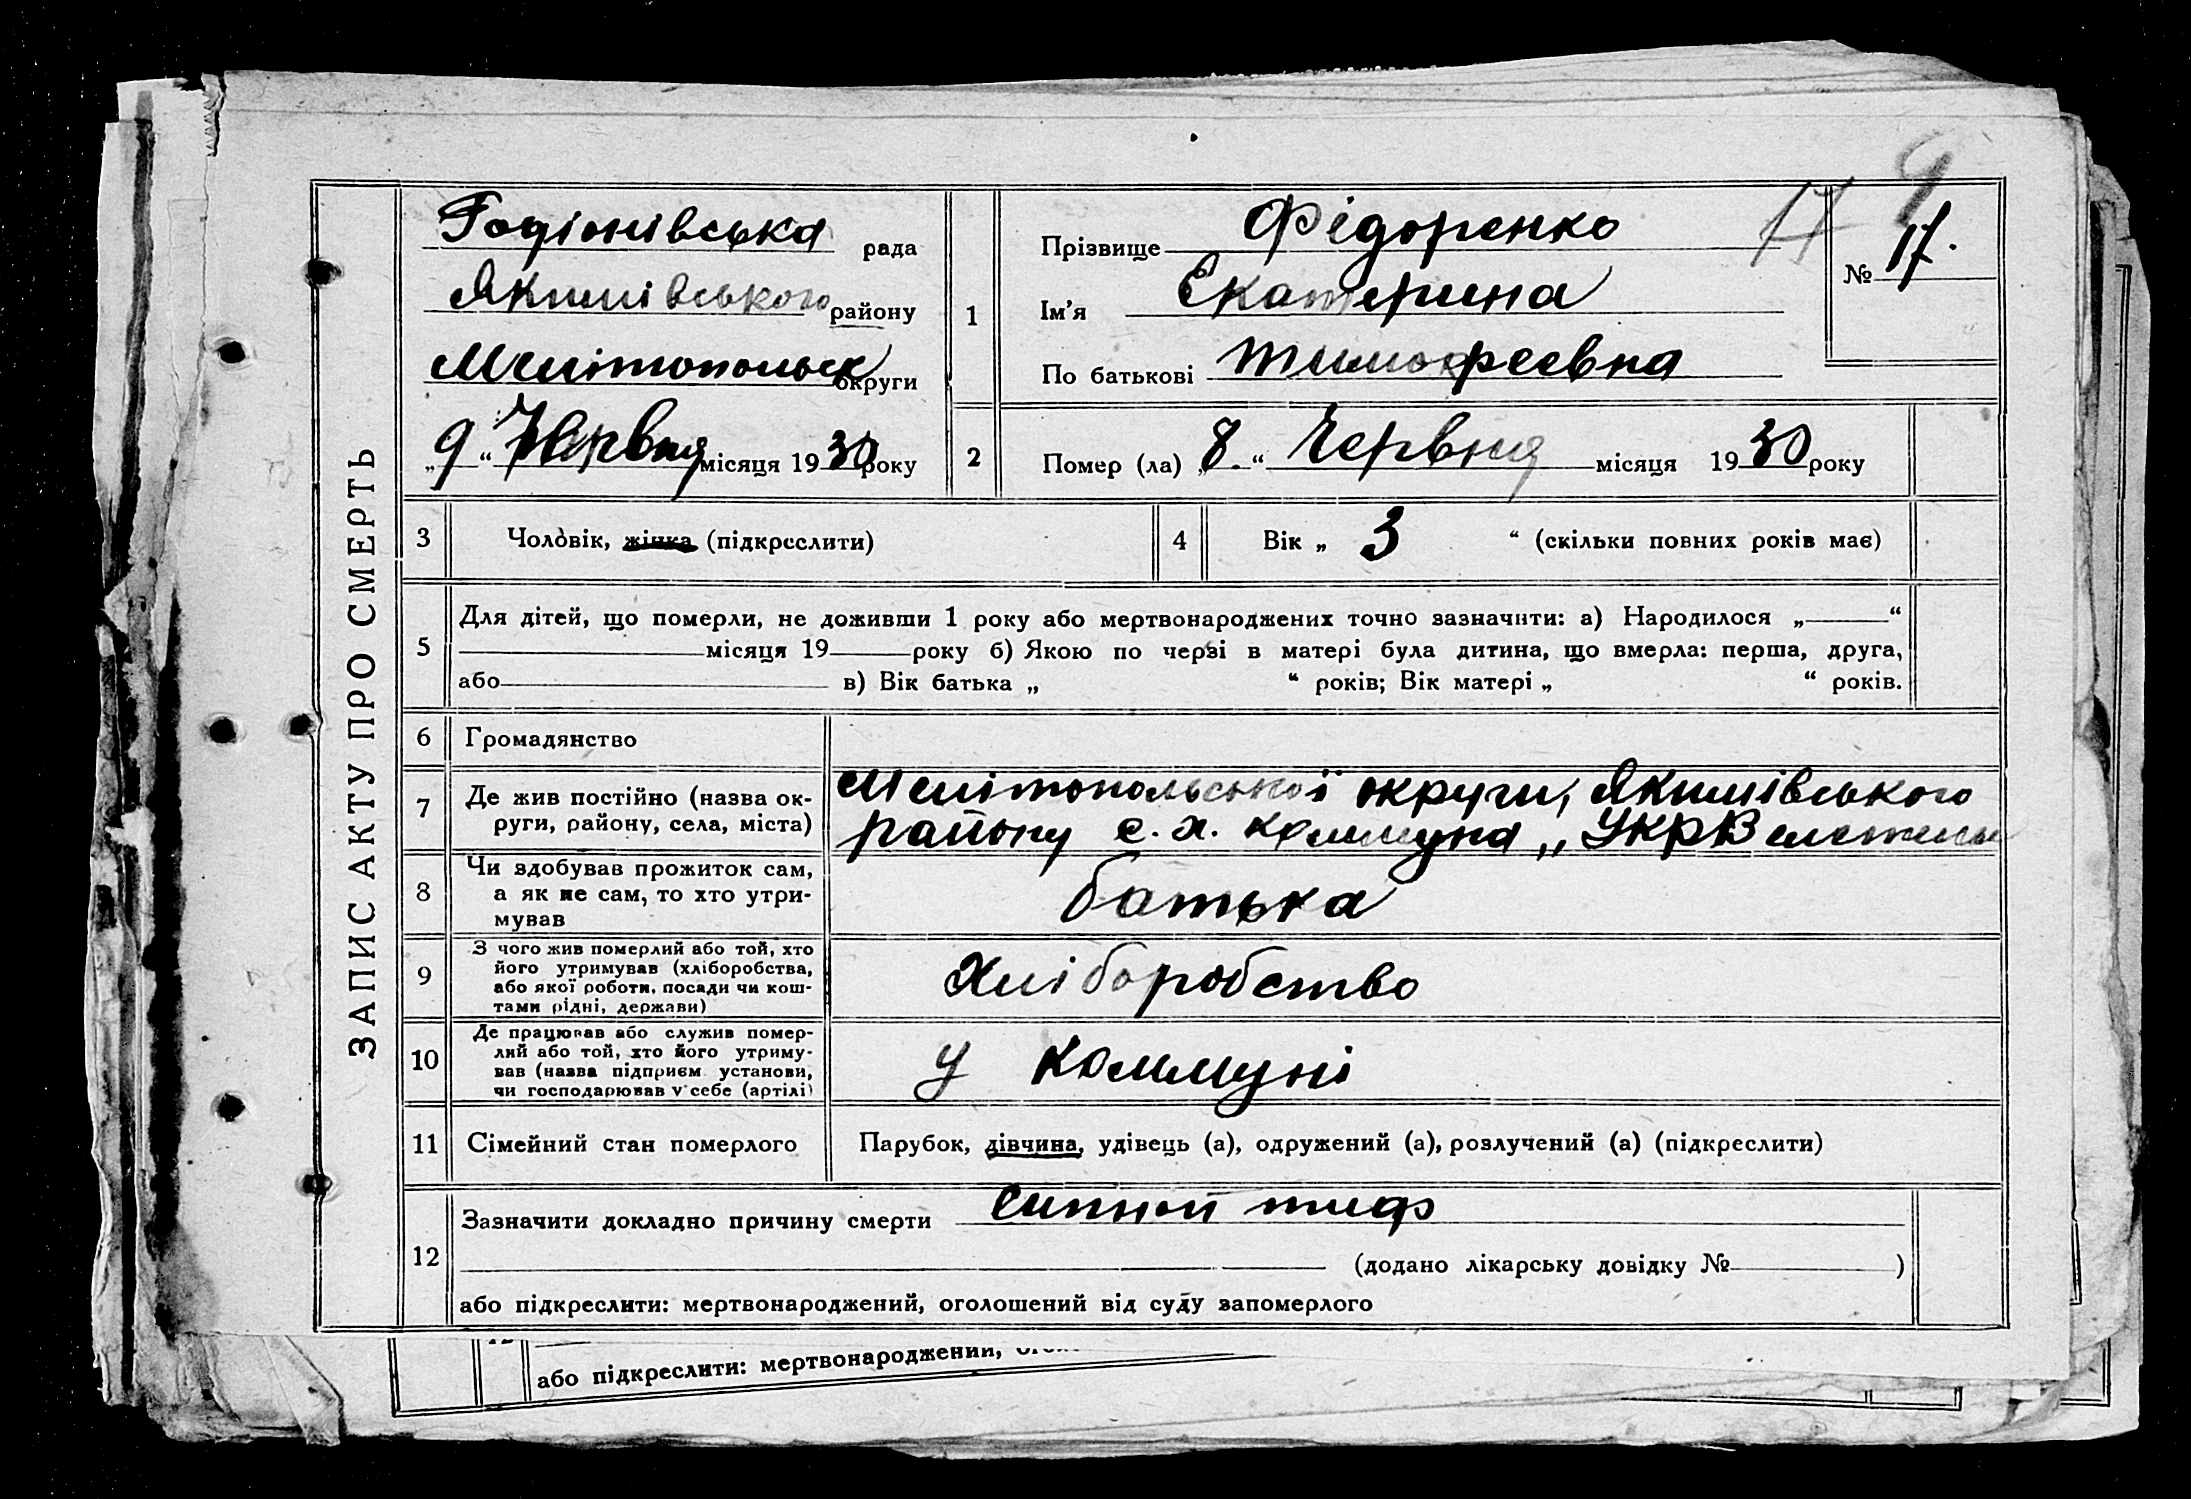 ЗАПИС АКТУ ПРО СМЕРТЬ
рада
Якимівського району
Мелітопольськ округи
„9“ Червня місяця 1930 року
1
Прізвище Федоренко
Ім'я Екатерина
По батькові Тимофеевна
17 9
№ 17.
2
Помер (ла) „8.“ Червня місяця 1930 року
3 Чоловік, жінка (підкреслити)
4 Вік „ 3 “ (скільки повних років має)
5 Для дітей, що померли, не доживши 1 року або мертвонароджених точно зазначити: а) Народилося „ “
місяця 19 року б) Якою по черзі в матері була дитина, що вмерла: перша, друга,
або в) Вік батька „ “ років; Вік матері „ “ років.
6 Громадянство
7 Де жив постійно (назва ок-
руги, району, села, міста)
Мелітопольської округи, Якимівського
району с. х. коммуна „
8 Чи здобував прожиток сам,
а як не сам, то хто утри-
мував
батька
9 З чого жив померлий або той, хто
його утримував (хліборобства,
або якої роботи, посади чи кош-
тами рідні, держави)
Хліборобство
10 Де працював або служив помер-
лий або той, хто його утриму-
вав (назва підприєм. установи,
чи господарював у себе (артілі)
у коммуні
11 Сімейний стан померлого
Парубок, дівчина, удівець (а), одружений (а), розлучений (а) (підкреслити)
12 Зазначити докладно причину смерти сипной тиф
(додано лікарську довідку № )
або підкреслити: мертвонароджений, оголошений від суду запомерлого
або підкреслити: мертвонароджений,